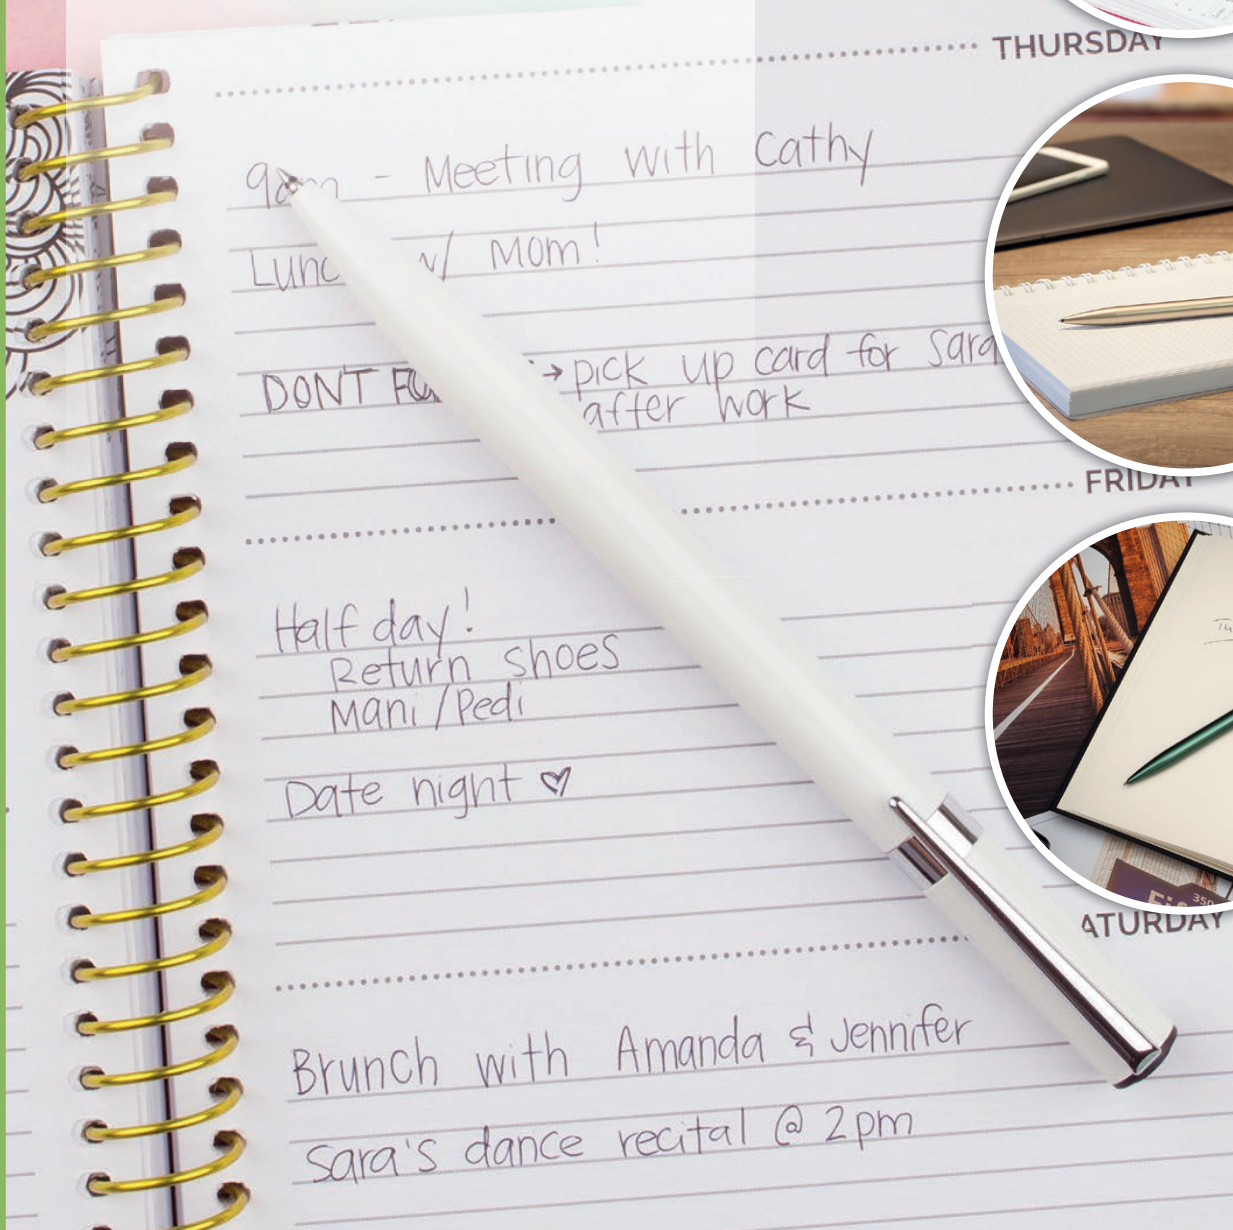 THURSDAY
9am - Meeting with Cathy
Lunch w/ Mom!
DONT → pick up card for Sara
after work
FRIDAY
Half day!
Return shoes
Mani/Pedi
Date night ♡
ATURDAY
Brunch with Amanda & Jennifer
Sara's dance recital @ 2pm
350